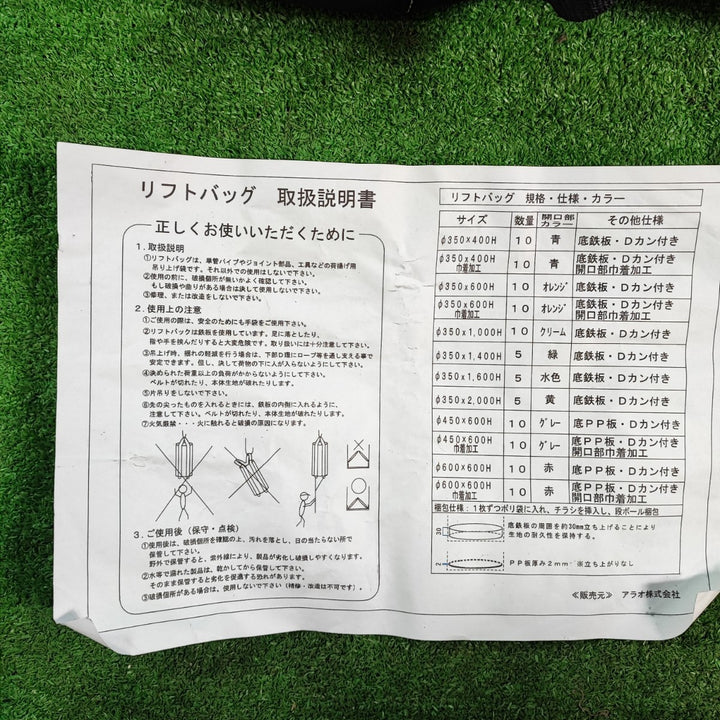 リフトバッグ 取扱説明書
正しくお使いいただくために
1．取扱説明
①リフトバッグは、単管パイプやジョイント部品、工具などの荷揚げ用
吊り上げ袋です。それ以外での使用はしないで下さい。
②使用の前に、破損個所が無いかよく確認して下さい。
もし破損や曲りがある場合は決して使用しないで下さい。
③修理、または改造をしないで下さい。
2．使用上の注意
①ご使用の際は、安全のためにも手袋をご使用下さい。
②リフトバックは鉄板を使用しています。足に落としたり、
指や手を挟んだりすると大変危険です。取り扱いには十分注意して下さい。
③吊上げ時、揺れの軽減を行う場合は、下部D環にロープ等を通し支える事で
安定できます。但し、決して荷物の下に人が入らないようにして下さい。
④決められた荷重以上の負荷がかからないようにして下さい。
ベルトが切れたり、本体生地が破れたりします。
⑤片吊りをしないで下さい。
⑥先の尖ったものを入れるときには、鉄板の内側に入れるように、
注意して下さい。ベルトが切れたり、本体生地が破れたりします。
⑦火気厳禁・・・火に触れると破損の原因になります。
3．ご使用後（保守・点検）
①使用後は、破損個所を確認の上、汚れを落とし、日の当たらない所で
保管して下さい。
野外で保管すると、紫外線により、製品が劣化し破損しやすくなります。
②水等で濡れた製品は、乾かしてから保管して下さい。
そのまま保管すると劣化を促進する恐れがあります。
③破損個所がある場合は、使用しないで下さい（補修・改造は不可です）。
リフトバッグ 規格・仕様・カラー
サイズ 数量 開口部カラー その他仕様
φ350×400H 10 青 底鉄板・Dカン付き
φ350×400H 巾着加工 10 青 底鉄板・Dカン付き 開口部巾着加工
φ350×600H 10 オレンジ 底鉄板・Dカン付き
φ350×600H 巾着加工 10 オレンジ 底鉄板・Dカン付き 開口部巾着加工
φ350×1,000H 10 クリーム 底鉄板・Dカン付き
φ350×1,400H 5 緑 底鉄板・Dカン付き
φ350×1,600H 5 水色 底鉄板・Dカン付き
φ350×2,000H 5 黄 底鉄板・Dカン付き
φ450×600H 10 グレー 底PP板・Dカン付き
φ450×600H 巾着加工 10 グレー 底PP板・Dカン付き 開口部巾着加工
φ600×600H 10 赤 底PP板・Dカン付き
φ600×600H 巾着加工 10 赤 底PP板・Dカン付き 開口部巾着加工
梱包仕様：1枚ずつポリ袋に入れ、チラシを挿入し、段ボール梱包
30
底鉄板の周囲を約30mm立ち上げることにより
生地の耐久性を保持する。
2
PP板厚み2mm：※立ち上がりなし
≪販売元≫ アラオ株式会社